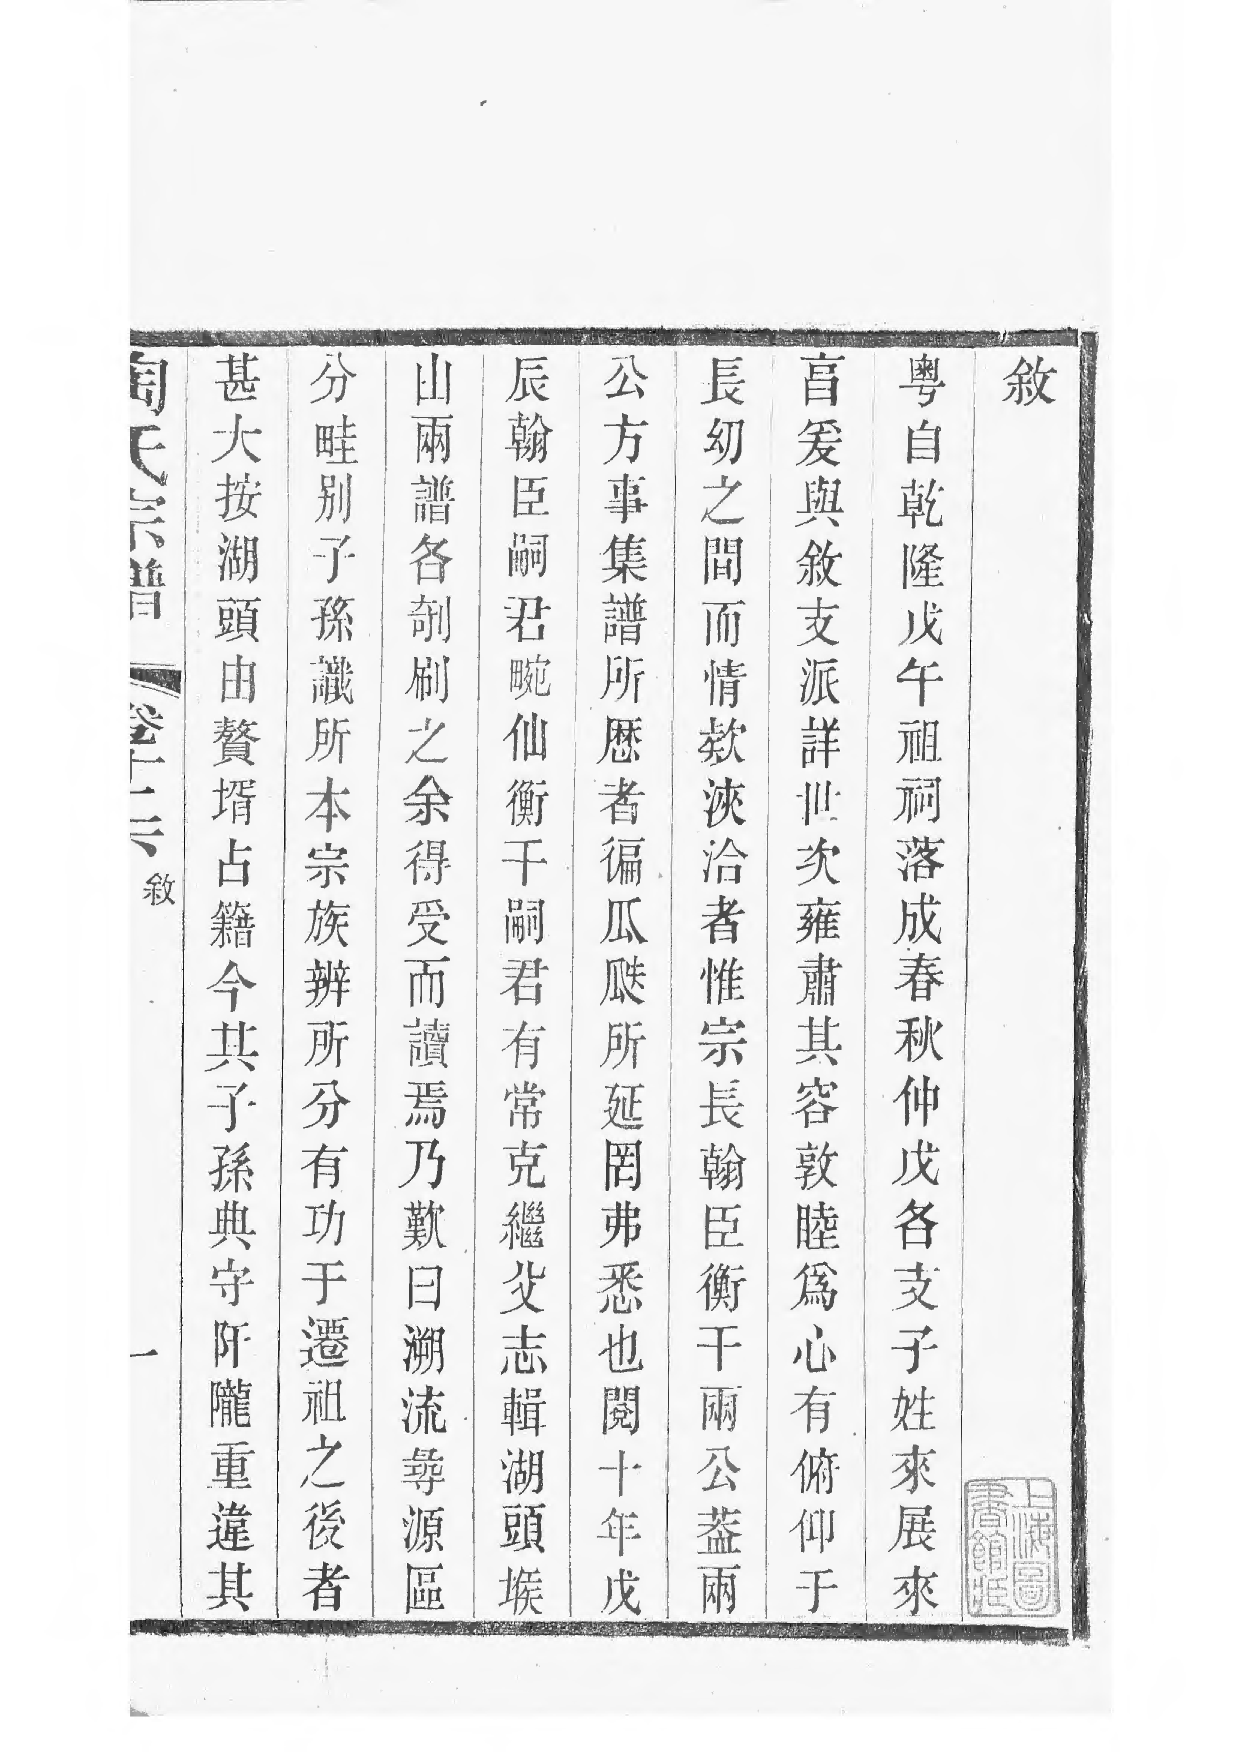 敘
粵自乾隆戊午祖祠落成春秋仲戊各支子姓來展來
亯爰與敘支派詳世次雍肅其容敦睦爲心有俯仰于
長幼之間而情欵浹洽者惟宗長翰臣衡干兩公葢兩
公方事集譜所歷者徧瓜瓞所延罔弗悉也閱十年戊
辰翰臣嗣君畹仙衡干嗣君有常克繼父志輯湖頭堠
山兩譜各剞刷之余得受而讀焉乃歎曰溯流尋源區
分畦別子孫識所本宗族辨所分有功于遷祖之後者
甚大按湖頭由贅壻占籍今其子孫典守阡隴重違其
陶氏宗譜 卷十六 敘 一
上海圖書館藏